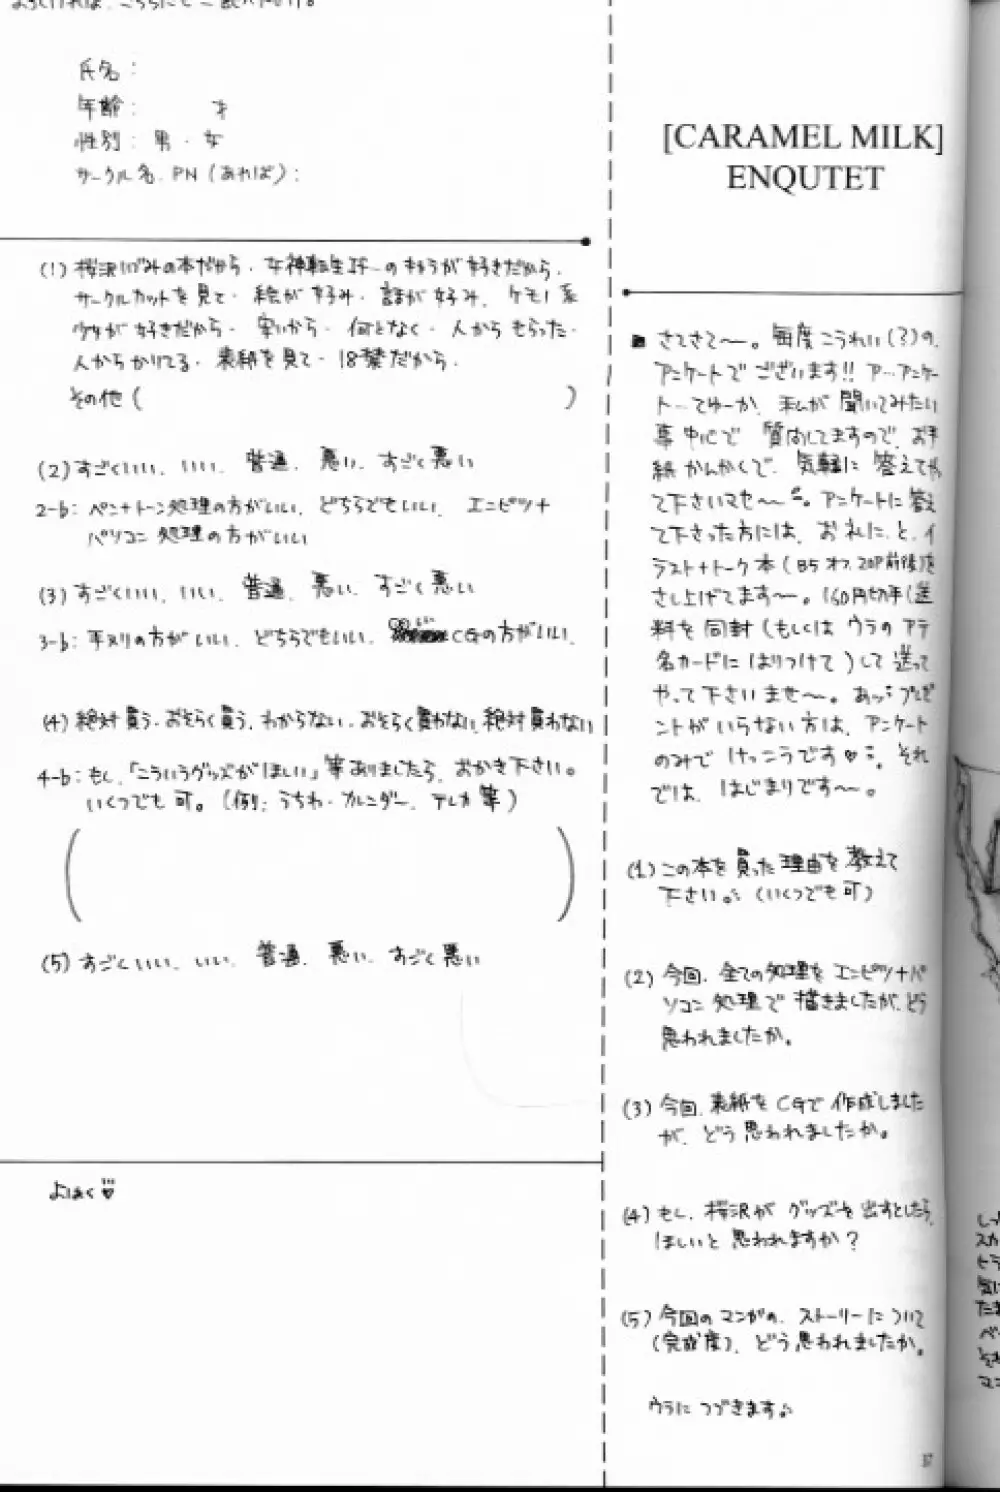 氏名:
年齢: 才
性別: 男・女
サークル名、PN(あれば):
(1) 桜沢いづみの本だから・女神転生if…の本が好きだから・
サークルカットを見て・絵が好み・話が好み、ケモノ系
少年が好きだから・安いから・何となく・人からもらった・
人からかりてる・表紙を見て・18禁だから・
その他( )
(2) すごくいい、いい、普通、悪い、すごく悪い
2-b: ペン+トーン処理の方がいい、どちらでもいい、エンピツ+
パソコン処理の方がいい
(3) すごくいい、いい、普通、悪い、すごく悪い
3-b: 手ヌリの方がいい、どちらでもいい、CGの方がいい、
(4) 絶対買う、おそらく買う、わからない、おそらく買わない、絶対買わない
4-b: もし、「こういうグッズがほしい」等ありましたら、おかき下さい。
いくつでも可。(例: うちわ・カレンダー、テレカ等)
(5) すごくいい、いい、普通、悪い、すごく悪い
よはく♡
[CARAMEL MILK]
ENQUTET
■ さてさて〜。毎度こうれい(?)の、
アンケートでございます!! ア…アンケー
ト…てゆーか、私が聞いてみたい
事中心で質問してますので、お手
紙かんかくで、気軽に答えてや
って下さいマセ〜。アンケートに答え
て下さった方には、お礼に、と、イ
ラスト+トーク本(B5オフ、20P前後)を
さし上げてます〜。160円切手(送
料を同封(もしくはウラのアテ
名カードにはりつけて)して送って
やって下さいませ〜。あっ:プレゼ
ントがいらない方は、アンケート
のみでけっこうです♡。それ
では、はじまりです〜。
(1) この本を買った理由を教えて
下さい。(いくつでも可)
(2) 今回、全ての処理をエンピツ+パ
ソコン処理で描きましたが、どう
思われましたか。
(3) 今回、表紙をCGで作成しました
が、どう思われましたか。
(4) もし、桜沢がグッズを出すとしたら、
ほしいと思われますか?
(5) 今回のマンガの、ストーリーについて
(完成度)、どう思われましたか。
ウラにつづきます♪
37